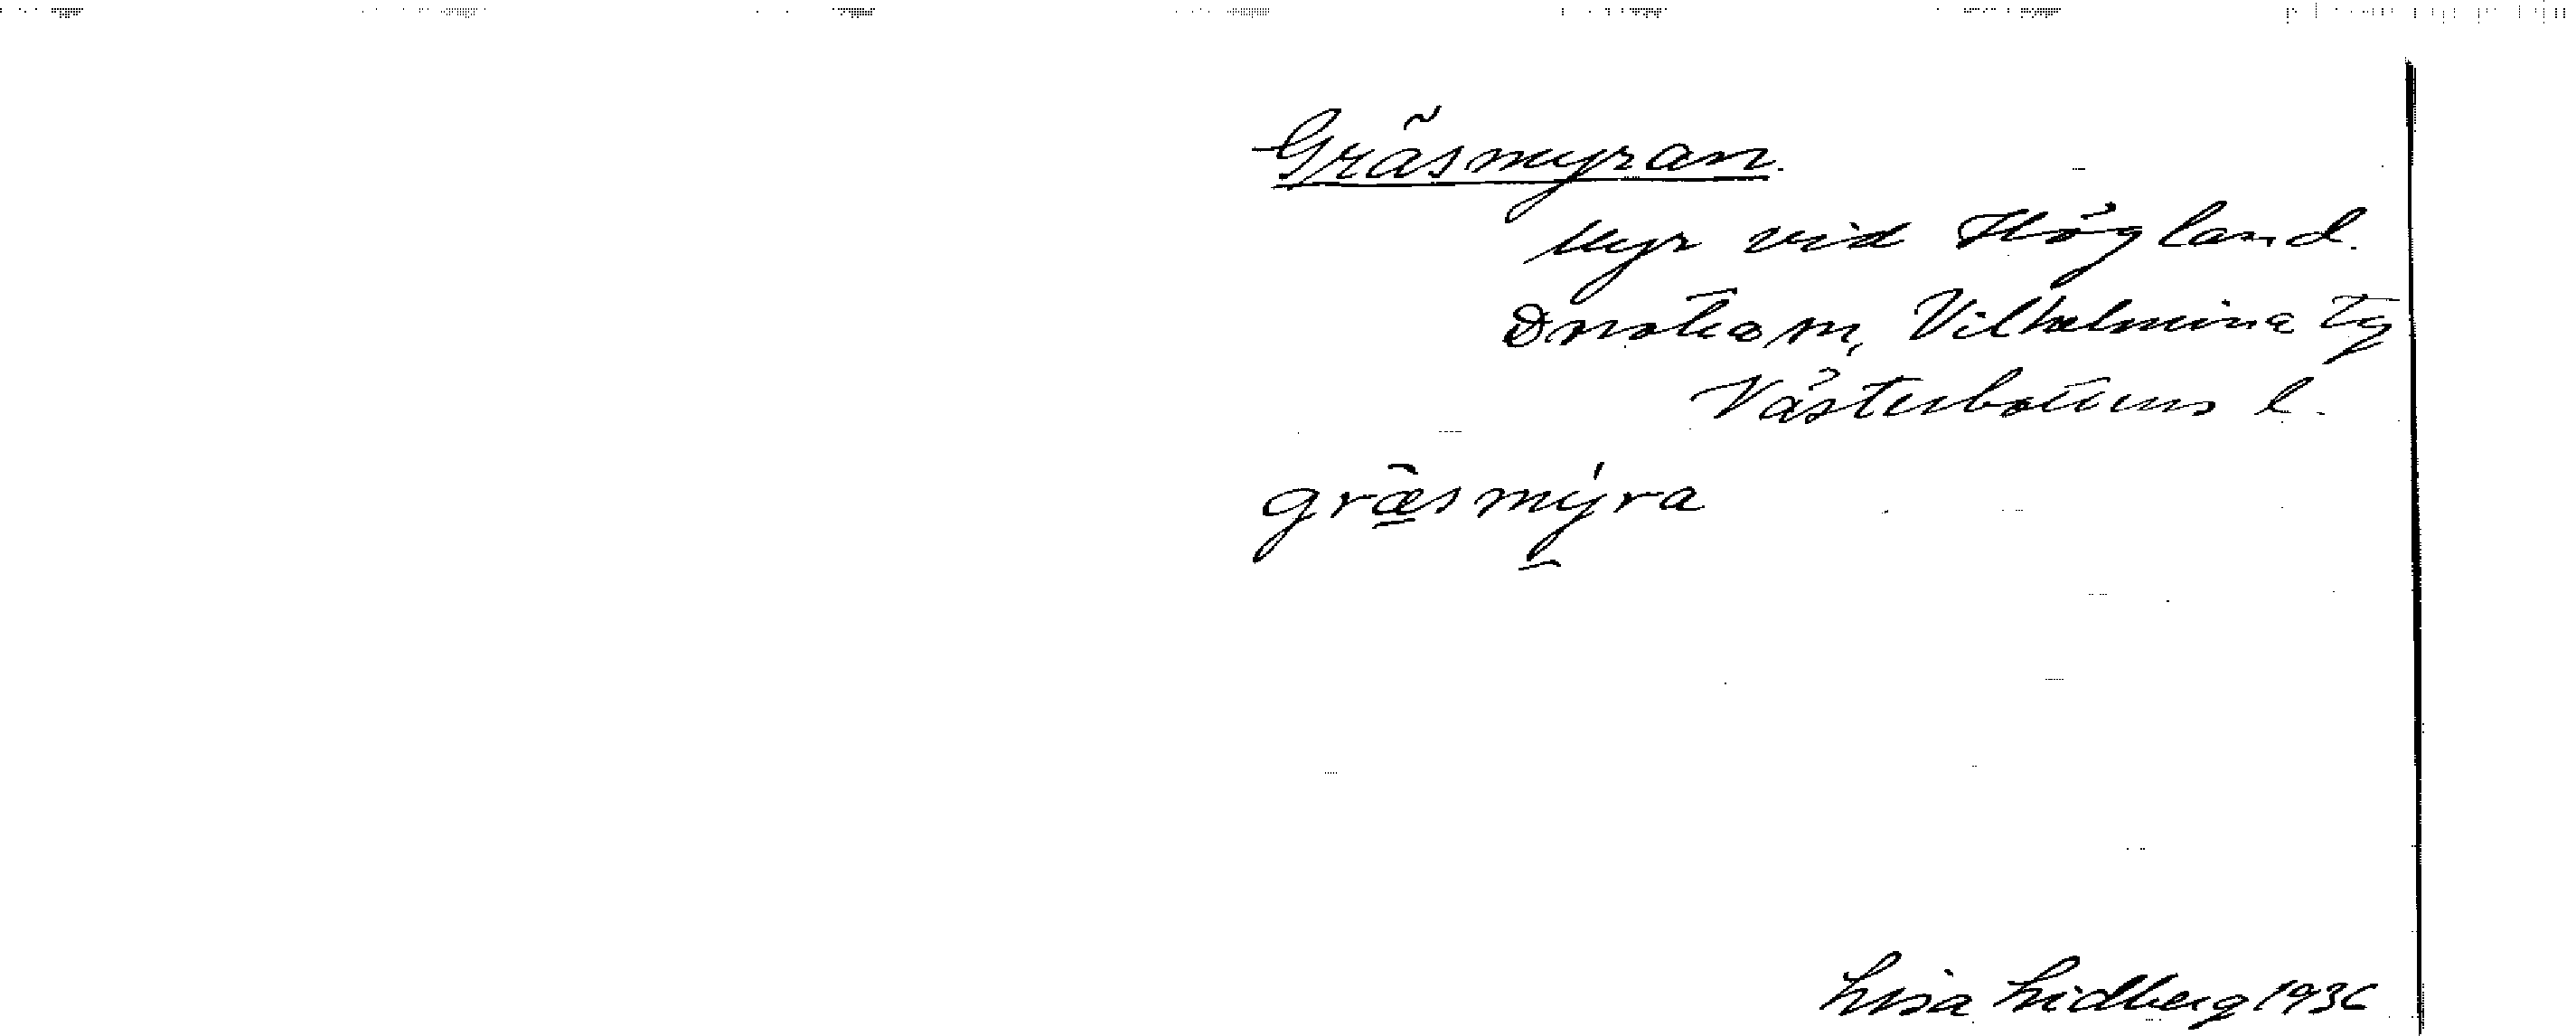 Gräsmyran.
Myr vid Högland.
Dorotea sn, Vilhelmina tg
Västerbottens l.
græsmýra
Lisa Lidberg 1936